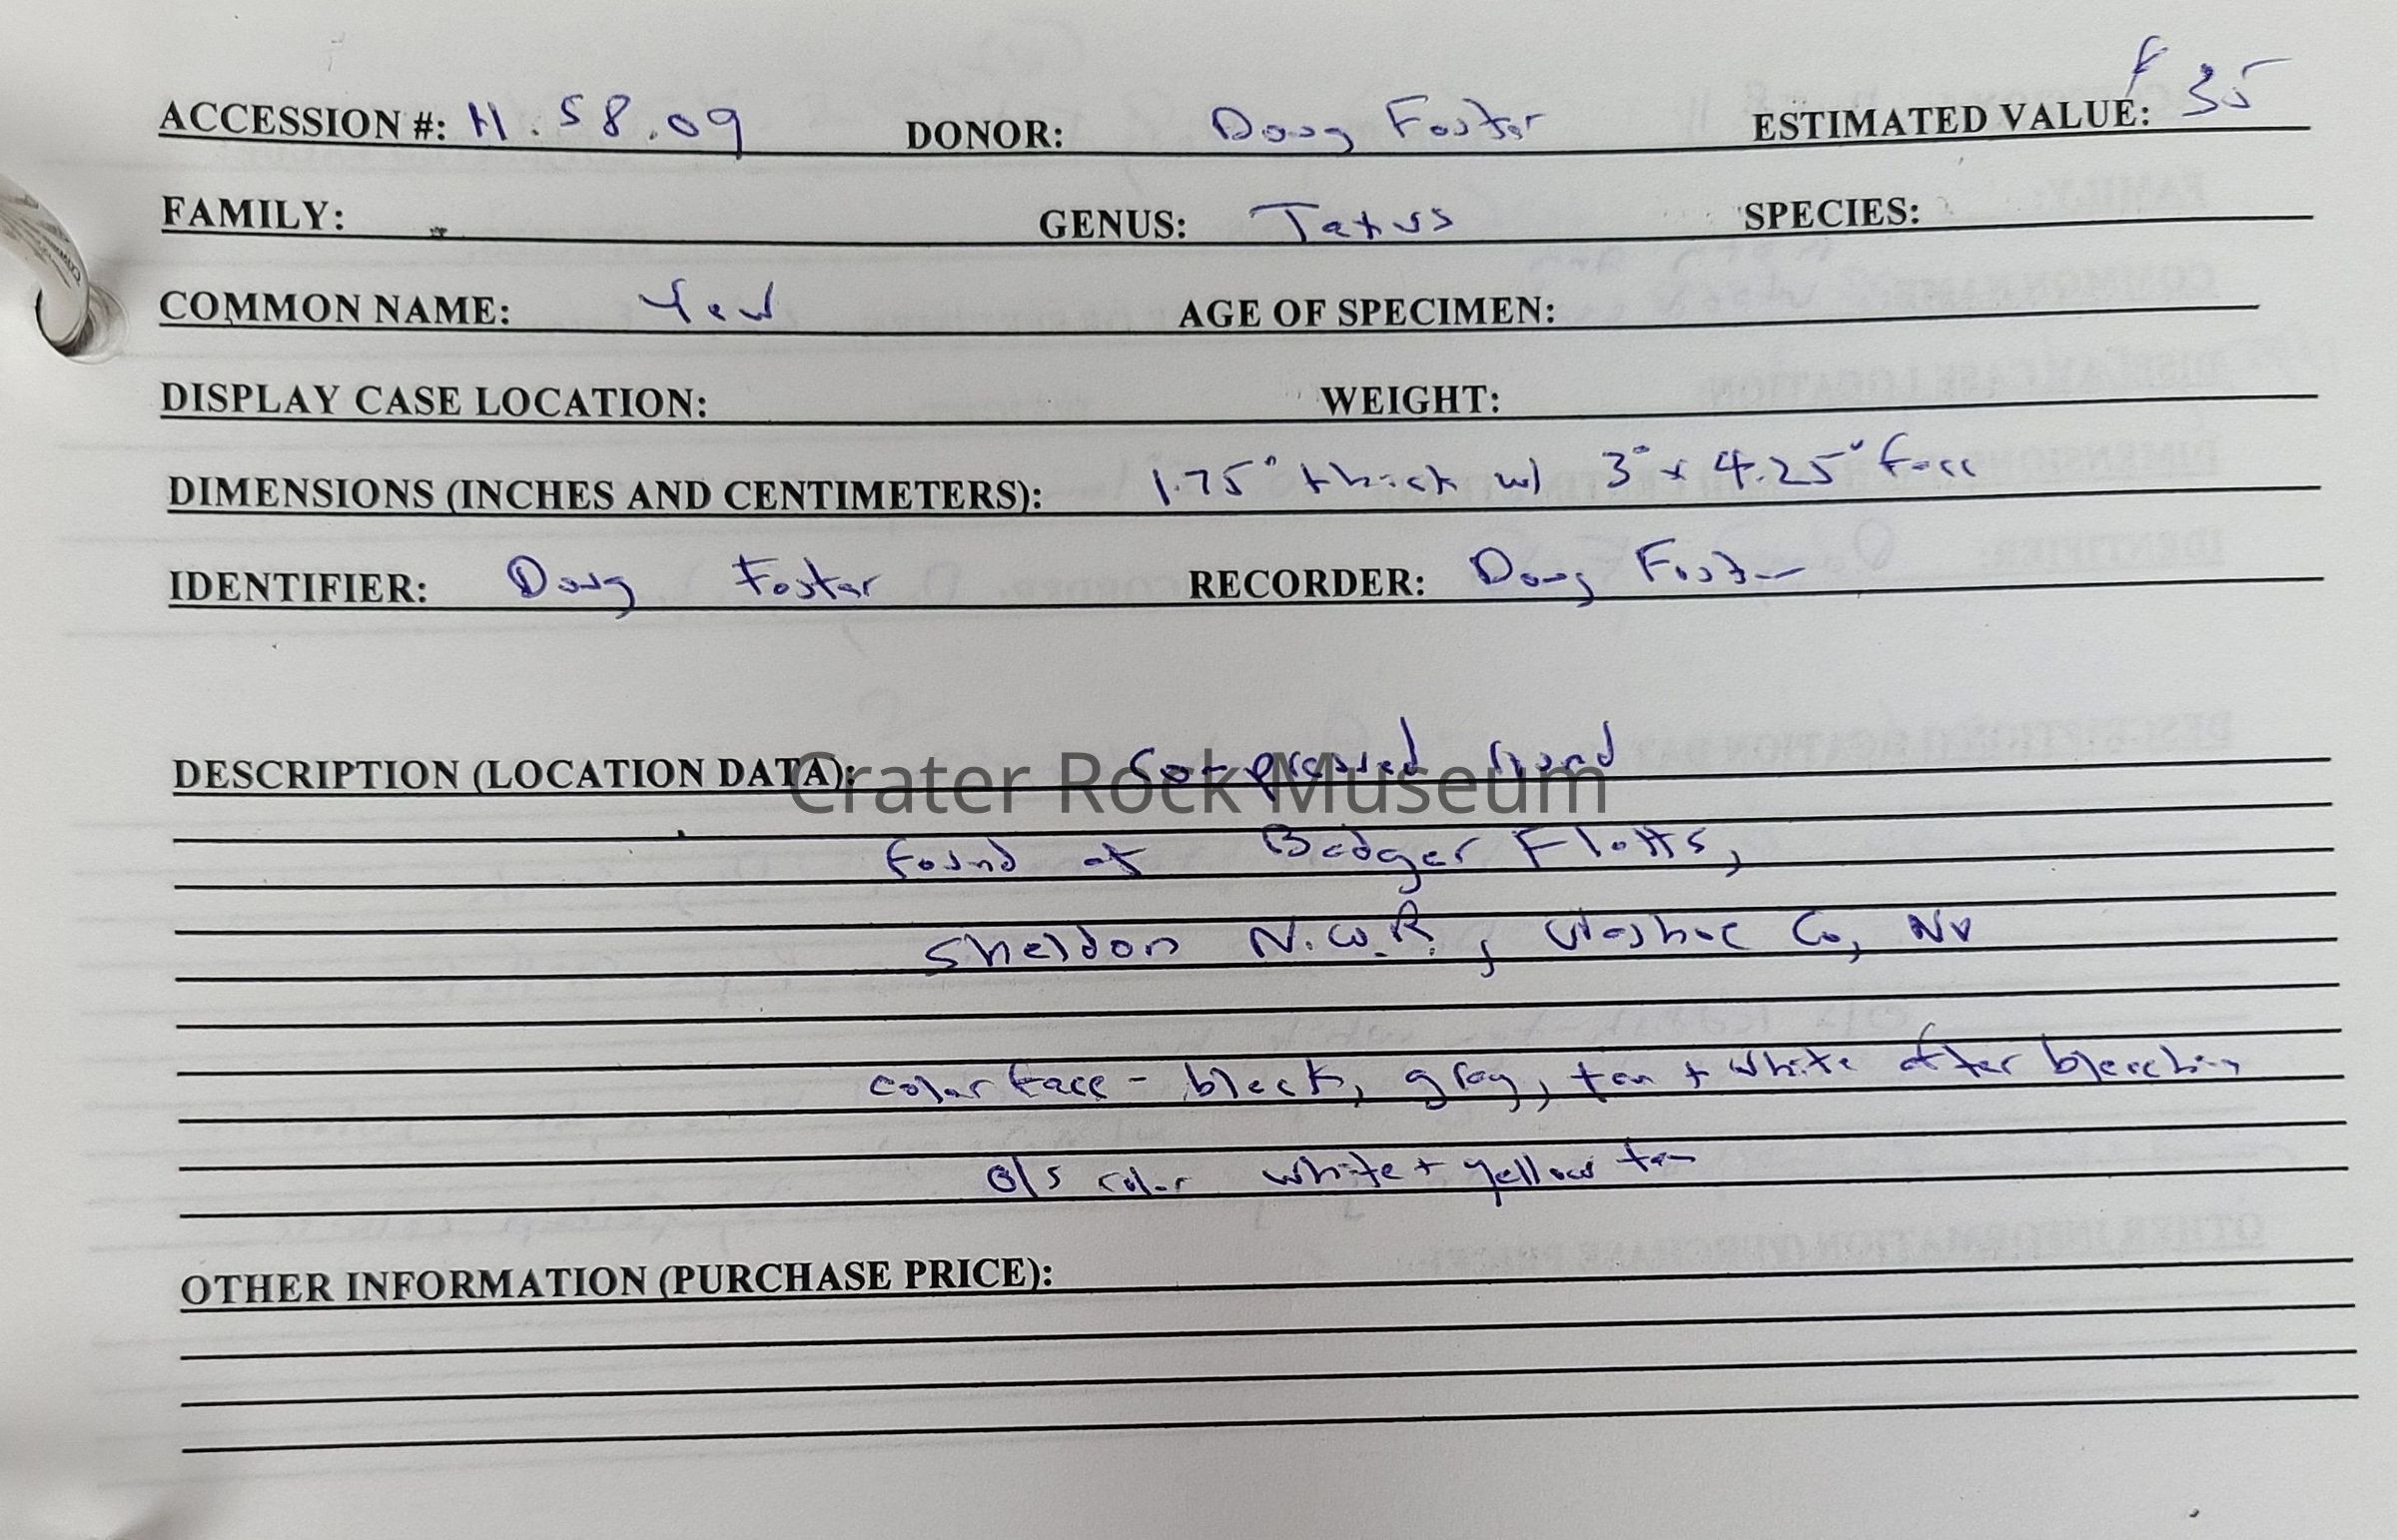 ACCESSION #: H.58.09 DONOR: Doug Foster ESTIMATED VALUE: $35
FAMILY: GENUS: Taxus SPECIES:
COMMON NAME: Yew AGE OF SPECIMEN:
DISPLAY CASE LOCATION: WEIGHT:
DIMENSIONS (INCHES AND CENTIMETERS): 1.75" thick w/ 3" x 4.25" face
IDENTIFIER: Doug Foster RECORDER: Doug Foster
DESCRIPTION (LOCATION DATA): Compressed limb
Crater Rock Museum
found at Badger Flatts,
Sheldon N.W.R., Washoe Co, NV
color face - black, gray, tan + white after bleaching
o/s color white + yellow tan
OTHER INFORMATION (PURCHASE PRICE):